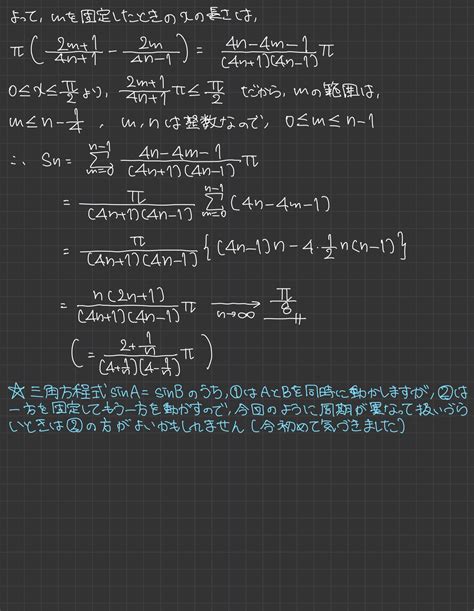 よって, mを固定したときのxの長さは,
π( (2m+1)/(4n+1) - 2m/(4n-1) ) = (4n-4m-1)/((4n+1)(4n-1)) π
0≤x≤π/2 より, (2m+1)/(4n+1) π ≤ π/2 だから, mの範囲は,
m≤n-1/4 , m, nは整数なので, 0≤m≤n-1
∴ Sn= Σ_{m=0}^{n-1} (4n-4m-1)/((4n+1)(4n-1)) π
= π/((4n+1)(4n-1)) Σ_{m=0}^{n-1} (4n-4m-1)
= π/((4n+1)(4n-1)) {(4n-1)n-4·1/2 n(n-1)}
= n(2n+1)/((4n+1)(4n-1)) π →(n→∞) π/8
( = (2+1/n)/((4+1/n)(4-1/n)) π )
☆ 三角方程式 sinA=sinBのうち,①はAとBを同時に動かしますが,②は
一方を固定してもう一方を動かすので,今回のように周期が異なって扱いづら
いときは②の方がよいかもしれません(今初めて気づきました)